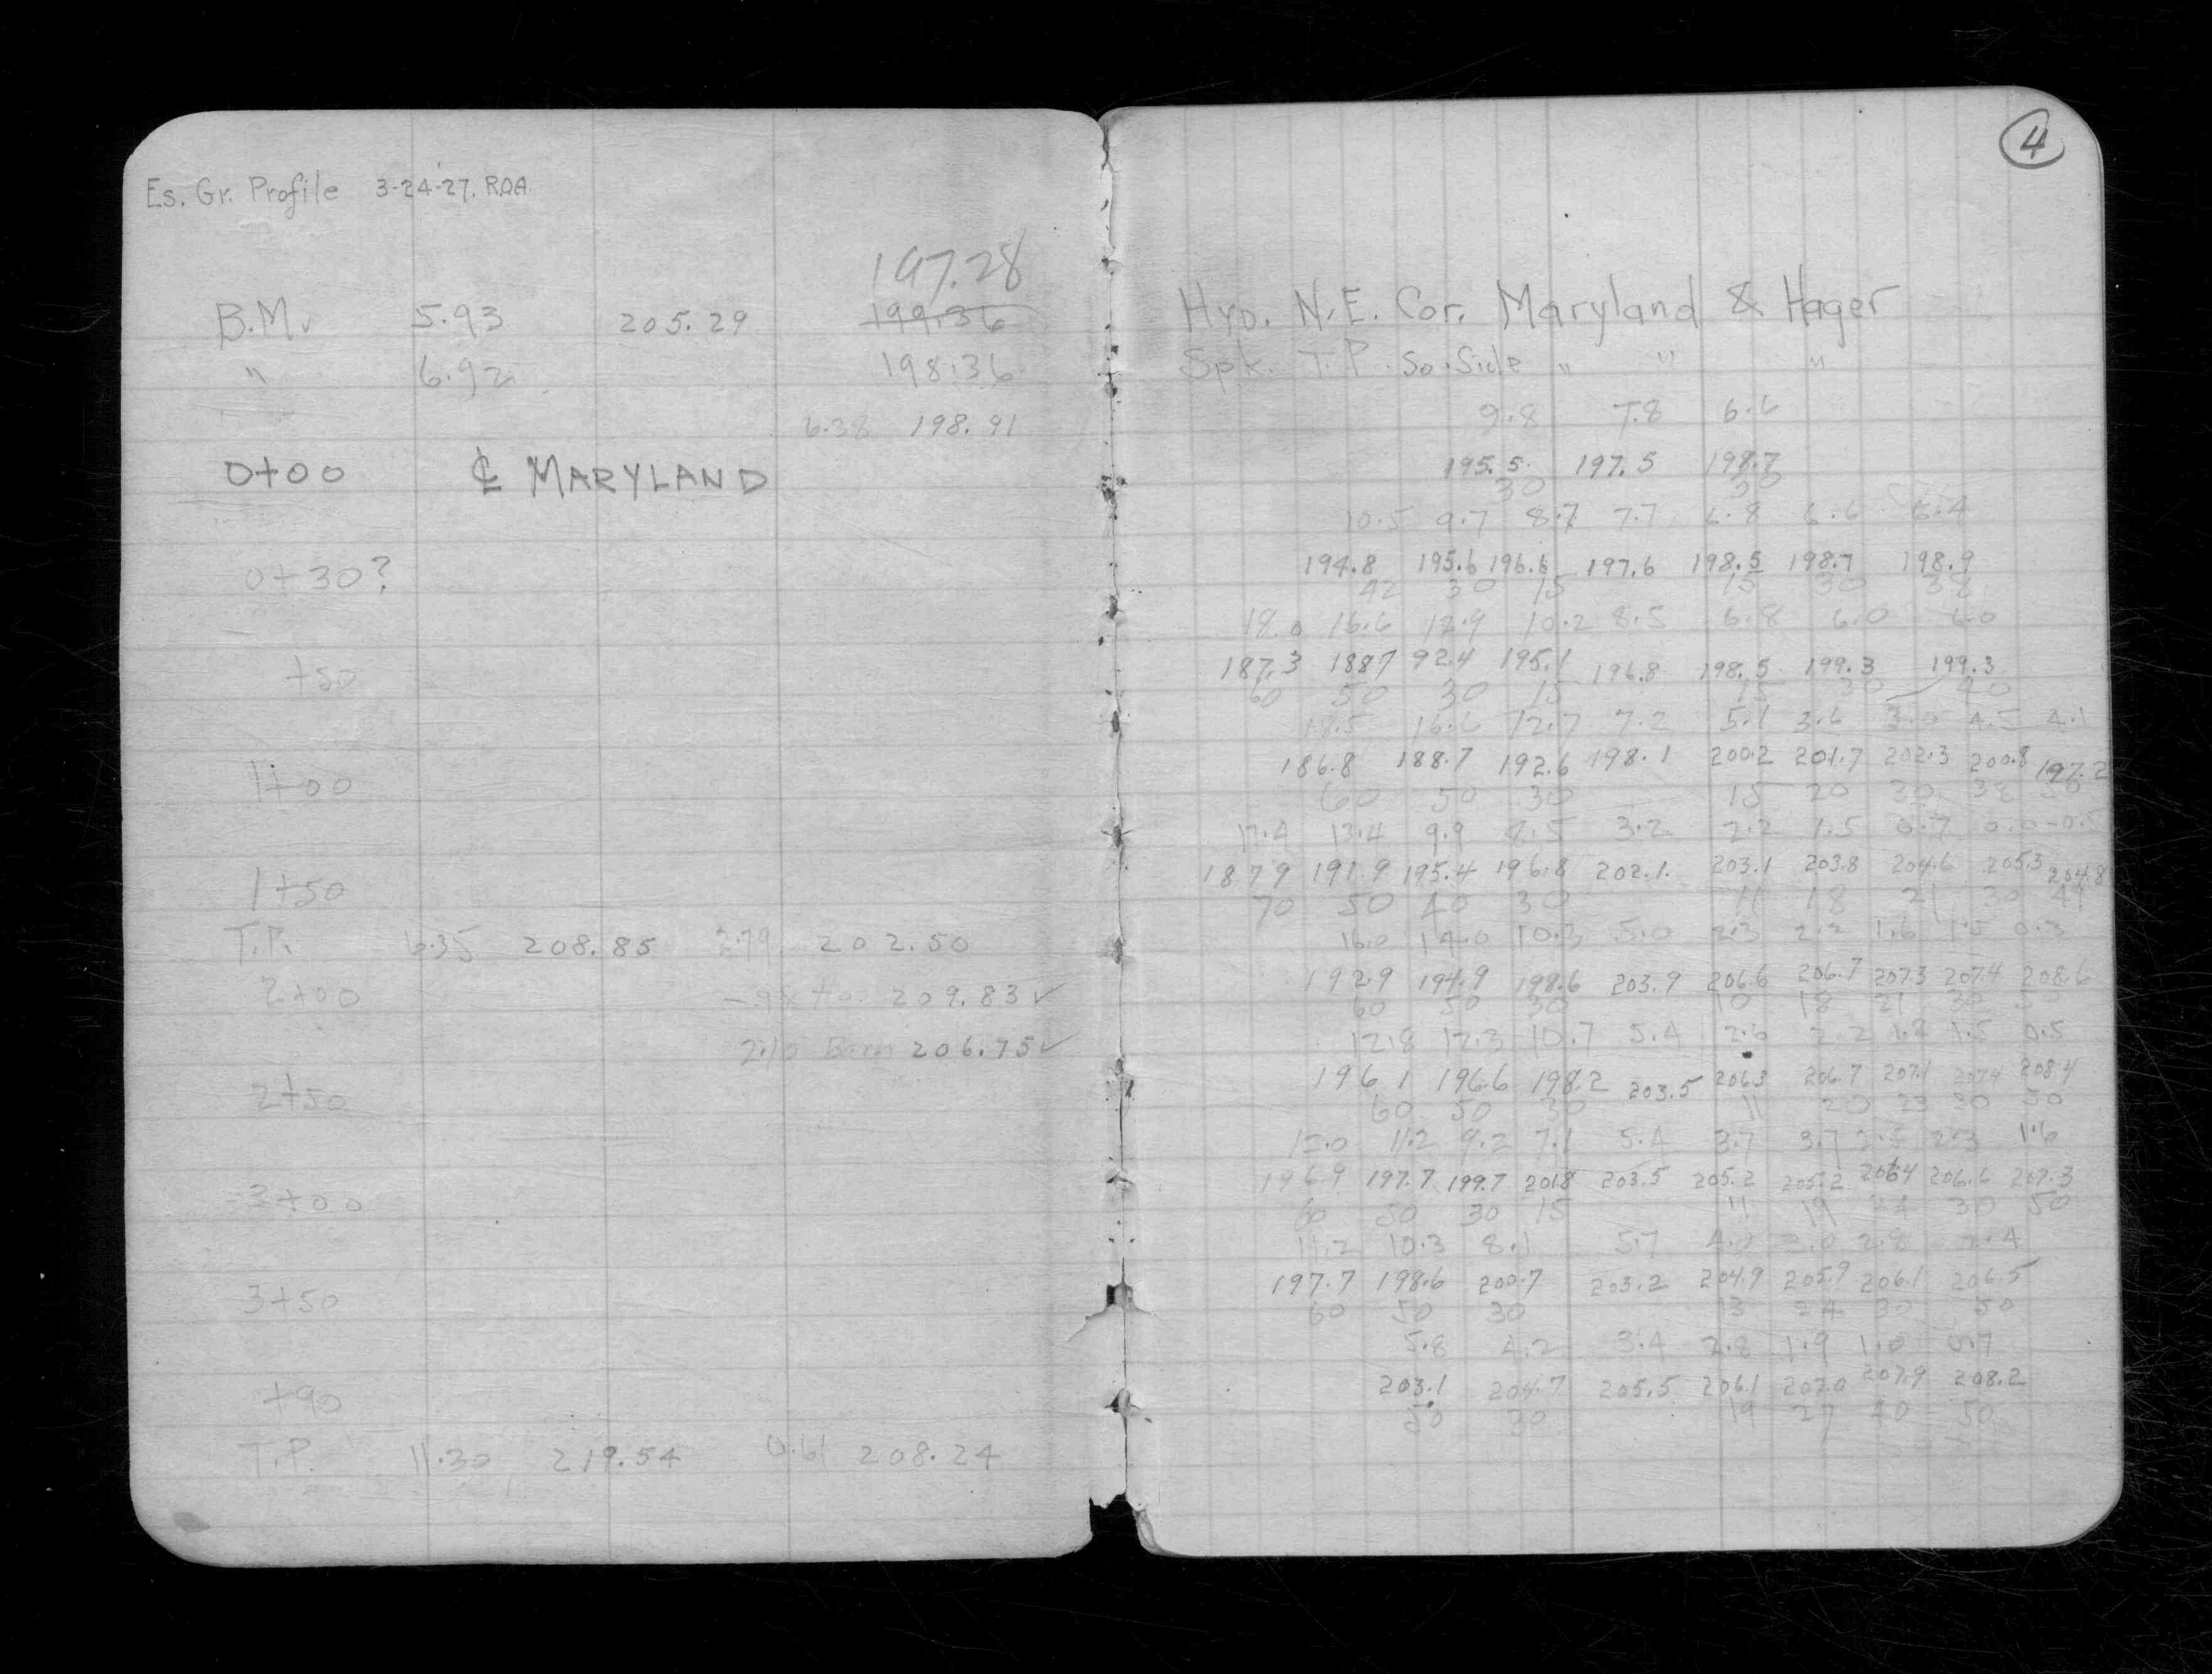 Es. Gr. Profile 3-24-27. ROA
197.28
B.M. 5.93 205.29 199.36
" 6.92 198.36
6.38 198.91
0+00 ℄ MARYLAND
0+30?
+50
1+00
1+50
T.P. 6.35 208.85 2.79 202.50
2+00 209.83 ✓
2.10 Barn 206.75 ✓
2+50
3+00
3+50
+90
T.P. 11.30 219.54 0.61 208.24
4
Hyd. N.E. Cor. Maryland & Hager
Spk. T.P. So. Side " " "
9.8 7.8 6.6
195.5 197.5 198.7
30 30
10.5 9.7 8.7 7.7 6.8 6.6 6.4
194.8 195.6 196.6 197.6 198.5 198.7 198.9
42 30 15 15 30 38
18.0 16.6 12.9 10.2 8.5 6.8 6.0 6.0
187.3 188.7 92.4 195.1 196.8 198.5 199.3 199.3
60 50 30 15 15 30 40
18.5 16.6 12.7 7.2 5.1 3.6 3.0 4.5 4.1
186.8 188.7 192.6 198.1 200.2 201.7 202.3 200.8 197.2
60 50 30 15 20 30 38
17.4 13.4 9.9 8.5 3.2 2.2 1.5 0.7 0.0 -0.5
187.9 191.9 195.4 196.8 202.1 203.1 203.8 204.6 205.3 204.8
70 50 40 30 11 18 21 30 41
16.0 14.0 10.3 5.0 2.3 2.2 1.6 1.5 0.3
192.9 194.9 198.6 203.9 206.6 206.7 207.3 207.4 208.6
60 50 30 10 18 21 30 50
12.8 12.3 10.7 5.4 2.6 2.2 1.8 1.5 0.5
196.1 196.6 198.2 203.5 206.3 206.7 207.1 207.4 208.4
60 50 30 11 20 23 30 50
12.0 11.2 9.2 7.1 5.4 3.7 3.7 2.5 2.3 1.6
196.9 197.7 199.7 201.8 203.5 205.2 205.2 206.4 206.6 207.3
60 50 30 15 11 19 24 30 50
11.2 10.3 8.1 5.7 4.0 3.0 2.8 2.4
197.7 198.6 200.7 203.2 204.9 205.9 206.1 206.5
60 50 30 13 24 30 50
5.8 4.2 3.4 2.8 1.9 1.0 0.7
203.1 204.7 205.5 206.1 207.0 207.9 208.2
50 30 19 27 40 50